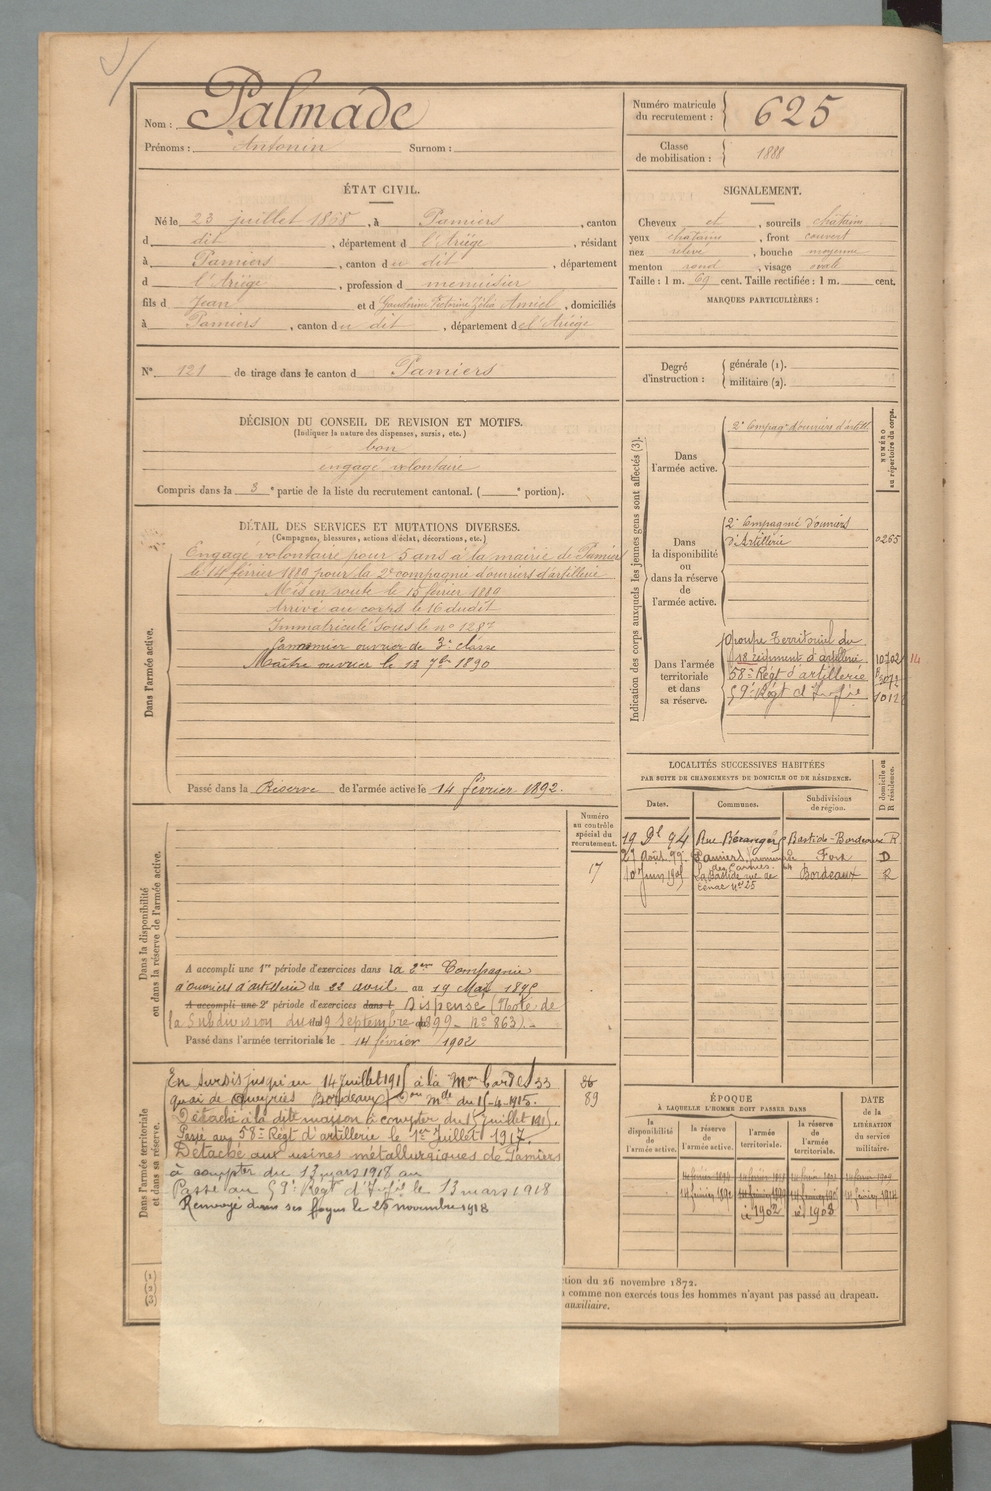 Nom : Palmade
Prénoms : Antonin Surnom :
Numéro matricule du recrutement : 625
Classe de mobilisation : 1888
ÉTAT CIVIL.
Né le 23 juillet 1868, à Pamiers, canton
d dit, département d l'Ariège, résidant
à Pamiers, canton du dit, département
d l'Ariège, profession d menuisier
fils d Jean et d Victorine Zélia Amiel, domiciliés
à Pamiers, canton du dit, département de l'Ariège
N° 121 de tirage dans le canton d Pamiers
SIGNALEMENT.
Cheveux et, sourcils châtains
yeux châtains, front couvert
nez relevé, bouche moyenne
menton rond, visage ovale
Taille : 1 m. 69 cent. Taille rectifiée : 1 m. cent.
MARQUES PARTICULIÈRES :
Degré d'instruction : générale (1).
militaire (2).
DÉCISION DU CONSEIL DE REVISION ET MOTIFS.
(Indiquer la nature des dispenses, sursis, etc.)
bon
engagé volontaire
Compris dans la 3e partie de la liste du recrutement cantonal. ( e portion).
DÉTAIL DES SERVICES ET MUTATIONS DIVERSES.
(Campagnes, blessures, actions d'éclat, décorations, etc.)
Dans l'armée active.
Engagé volontaire pour 5 ans à la mairie de Pamiers
le 14 février 1889 pour la 2e compagnie d'ouvriers d'artillerie
Mis en route le 15 février 1889
Arrivé au corps le 16 dudit
Immatriculé sous le n° 1287
Canonnier ouvrier de 3e classe
Maître ouvrier le 13 7bre 1890
Passé dans la Réserve de l'armée active le 14 février 1892.
Indication des corps auxquels les jeunes gens sont affectés (3).
NUMÉRO au répertoire du corps.
Dans l'armée active.
2e Compagie d'ouvriers d'artill.
Dans la disponibilité ou dans la réserve de l'armée active.
2e Compagnie d'ouvriers
d'Artillerie 0265
Dans l'armée territoriale et dans sa réserve.
Groupe Territorial du
18 régiment d'artillerie 10702 14
58e Régt d'artillerie
59e Régt d'Infie 1012
LOCALITÉS SUCCESSIVES HABITÉES
PAR SUITE DE CHANGEMENTS DE DOMICILE OU DE RÉSIDENCE.
Dates. Communes. Subdivisions de région. D domicile ou R résidence.
Rue Béranger Bastide-Bordeaux R
27 Août 99 Pamiers, promenade des Carmes Foix D
La Bastide rue de N° 25 Bordeaux R
Dans la disponibilité ou dans la réserve de l'armée active.
Numéro au contrôle spécial du recrutement.
17
A accompli une 1re période d'exercices dans la 2e Compagnie
d'ouvriers d'artillerie du 22 avril au 19 Mai 1895
A accompli une 2e période d'exercices dans l Dispensé (Note de
la Subdivision du 9 Septembre 1899 - N° 863).
Passé dans l'armée territoriale le 14 février 1902
Dans l'armée territoriale et dans sa réserve.
En sursis jusqu'au 14 Juillet 1915 à la Mon 33
quai de Queyries Bordeaux
Détaché à la dite maison à compter du 15 juillet 1915.
Passé au 58e Régt d'artillerie le 1er juillet 1917.
Détaché aux usines métallurgiques de Pamiers
à compter du 13 mars 1918 au
Passé au 59e Régt d'Infie le 13 mars 1918
Renvoyé dans ses foyers le 25 novembre 1918
89
ÉPOQUE
À LAQUELLE L'HOMME DOIT PASSER DANS
la disponibilité de l'armée active.
la réserve de l'armée active.
l'armée territoriale.
la réserve de l'armée territoriale.
DATE de la LIBÉRATION du service militaire.
14 février 1892
1902 1908
(1)
(2)
(3)
tion du 26 novembre 1872.
comme non exercés tous les hommes n'ayant pas passé au drapeau.
auxiliaire.